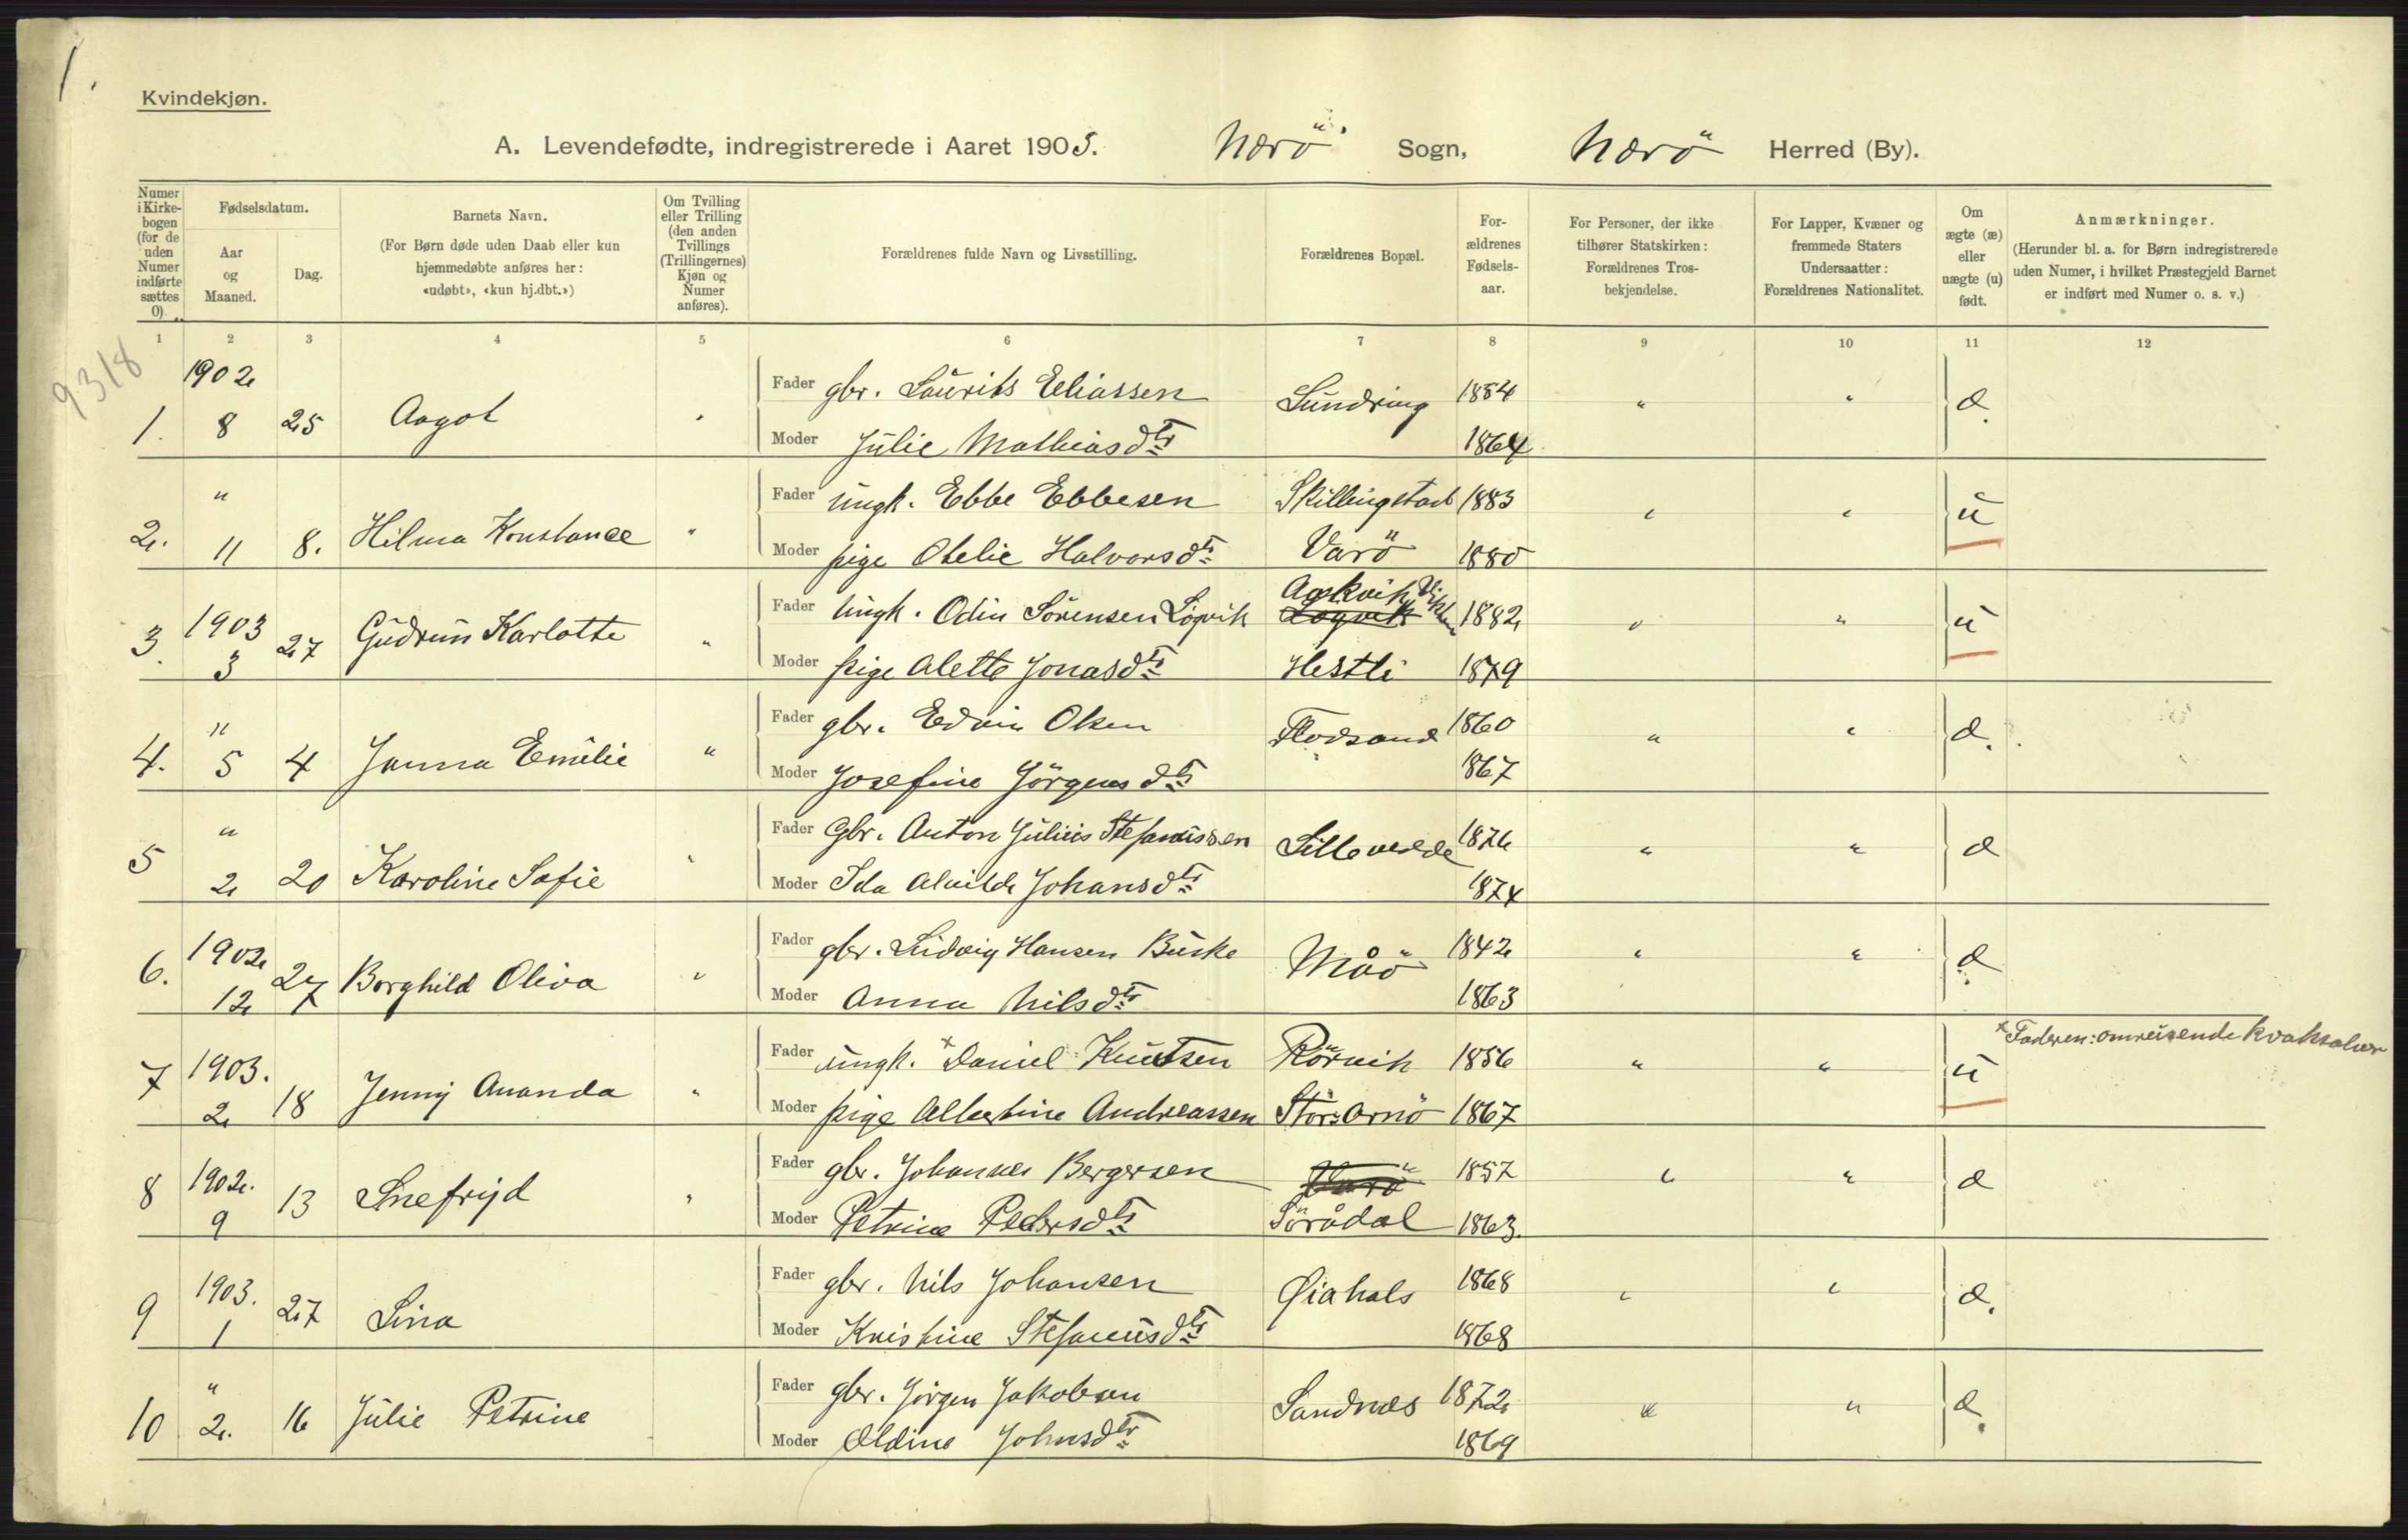 1.
Kvindekjøn.
A. Levendefødte, indregistrerede i Aaret 1903. Nærö Sogn, Nærö Herred (By).
Numer i Kirkebogen (for de uden Numer indførte sættes 0)
Fødselsdatum.
Aar og Maaned.
Dag.
Barnets Navn.
(For Børn døde uden Daab eller kun hjemmedøbte anføres her: «udøbt», «kun hj.dbt.»)
Om Tvilling eller Trilling (den anden Tvillings (Trillingernes) Kjøn og Numer anføres).
Forældrenes fulde Navn og Livsstilling.
Forældrenes Bopæl.
Forældrenes Fødselsaar.
For Personer, der ikke tilhører Statskirken: Forældrenes Trosbekjendelse.
For Lapper, Kvæner og fremmede Staters Undersaatter: Forældrenes Nationalitet.
Om ægte (æ) eller uægte (u) født.
Anmærkninger.
(Herunder bl. a. for Børn indregistrerede uden Numer, i hvilket Præstegjeld Barnet er indført med Numer o. s. v.)
1 2 3 4 5 6 7 8 9 10 11 12
9318
1902
1. 8 25 Aagot " Fader gbr. Laurits Eliassen Lundring 1854 " " æ.
Moder Julie Mathiasdtr 1864
"
2. 11 8. Hilma Konstance " Fader ungk. Ebbe Ebbesen Skillingstad 1883 " " u
Moder pige Otelie Halvorsdtr Varö 1880
1903
3. 3 27 Gudrun Karlotte " Fader ungk. Odin Sörensen Lögvik 1882 " " u
Moder pige Alette Jonasdtr Hestli 1879
"
4. 5 4 Janna Emilie " Fader gbr. Edvin Olsen Flosand 1860 " " æ.
Moder Josefine Jörgensdtr 1867
"
5 2 20 Karoline Sofie " Fader Gbr. Anton Julius Stefanussen 1876 " " æ
Moder Ida Alvilde Johansdtr 1874
1902
6. 12 27 Borghild Oliva " Fader gbr. Ludvig Hansen Buske Måö 1842 " " æ
Moder Anna Nilsdtr 1863
1903.
7 2 18 Jenny Ananda " Fader ungk. × Daniel Knutsen Rörvik 1856 " " u × Faderen: omreisende kvaksalver
Moder pige Albertine Andreassen Stor-Arnö 1867
1902.
8 9 13 Snefryd " Fader gbr. Johannes Bergersen Varö 1857 " " æ
Moder Petrine Pedersdtr Söraadal 1863.
1903.
9 1 27 Lina Fader gbr. Nils Johansen Øiahals 1868 " " æ.
Moder Kristine Stefanusdtr 1868
"
10 2. 16 Julie Petrine Fader gbr. Jörgen Jakobsen Sandnes 1872 " " æ.
Moder Oldine Johnsdtr 1869